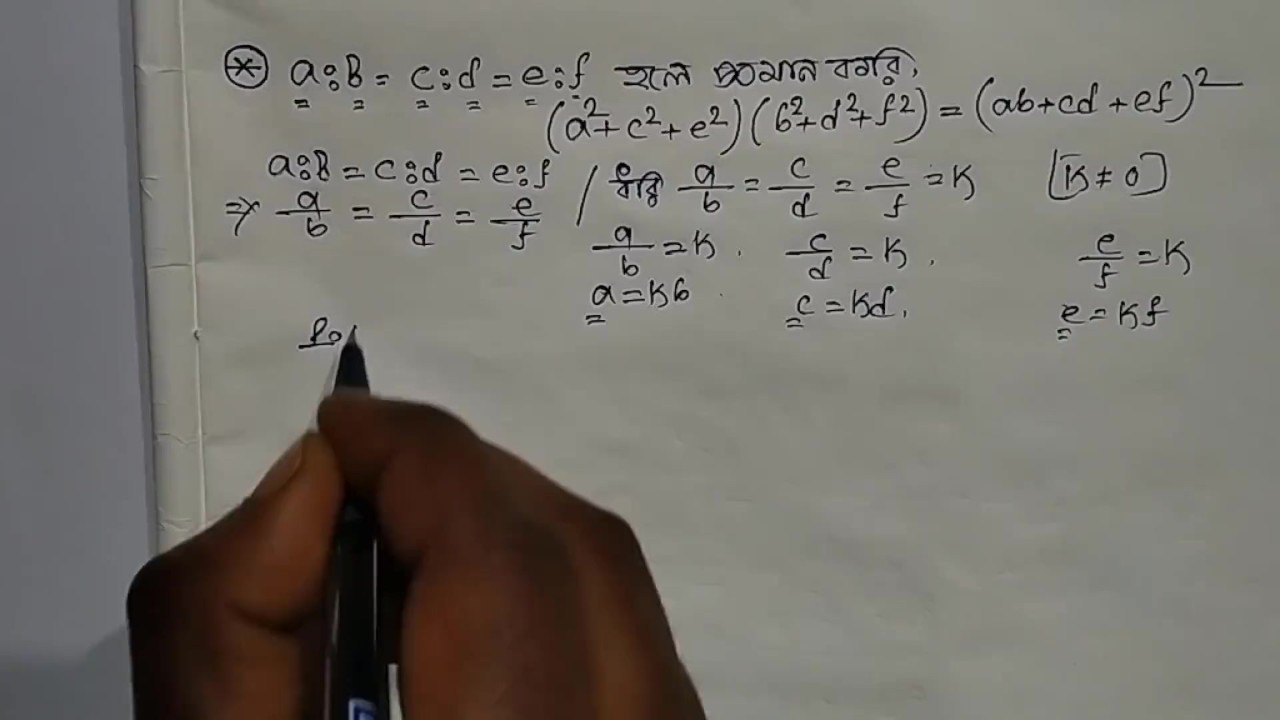 * a:B = c:d = e:f হলে প্রমান করি,
(a²+c²+e²)(b²+d²+f²) = (ab+cd+ef)²
a:B = c:d = e:f / ধরি a/b = c/d = e/f = K [K≠0]
⇒ a/b = c/d = e/f
a/b = K. c/d = K. e/f = K
a = Kb. c = Kd. e = Kf